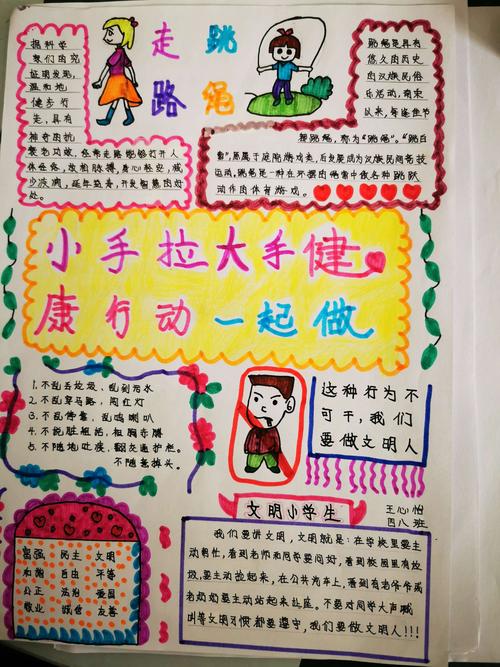 走路
跳绳
据科学
家们的究
证明发现,
温和地,
健步行
走,具有
神奇的抗
衰老功效,经常走路能够打开人
体经络,发拍脉搏,身心轻安,减
少冷漠,延年益寿,开发智慧的好
处。
跳绳是具有
悠久的历史
的汉族民俗
乐活动,南宋
以来,每逢佳节
称跳绳,称为“跳白
索”,原属于庭院游戏类,后发展成为汉族民间竞技
运动,跳绳是一种在环摆的绳索中做各种跳跃
动作的体育游戏。
小手拉大手健
康行动一起做
1.不乱丢垃圾、乱到污水
2.不乱穿马路、闯红灯
3.不乱停靠,乱鸣喇叭
4.不说脏粗话,袒胸赤膊
5.不随地吐痰、翻交通护栏。
不随意掉头。
这种行为不
可干,我们
要做文明人
富强 民主 文明
和谐 自由 平等
公正 法治 爱国
敬业 诚信 友善
文明小学生
王心怡
四八班
我们要讲文明,文明就是:在学校里要主
动帮忙,看到老师和同学要问好,看到校园里有垃
圾,要主动捡起来,在公共汽车上,看到有老爷爷或
老奶奶要主动站起来让座。不要对同学大声喊
叫等文明习惯都要遵守,我们要做文明人!!!